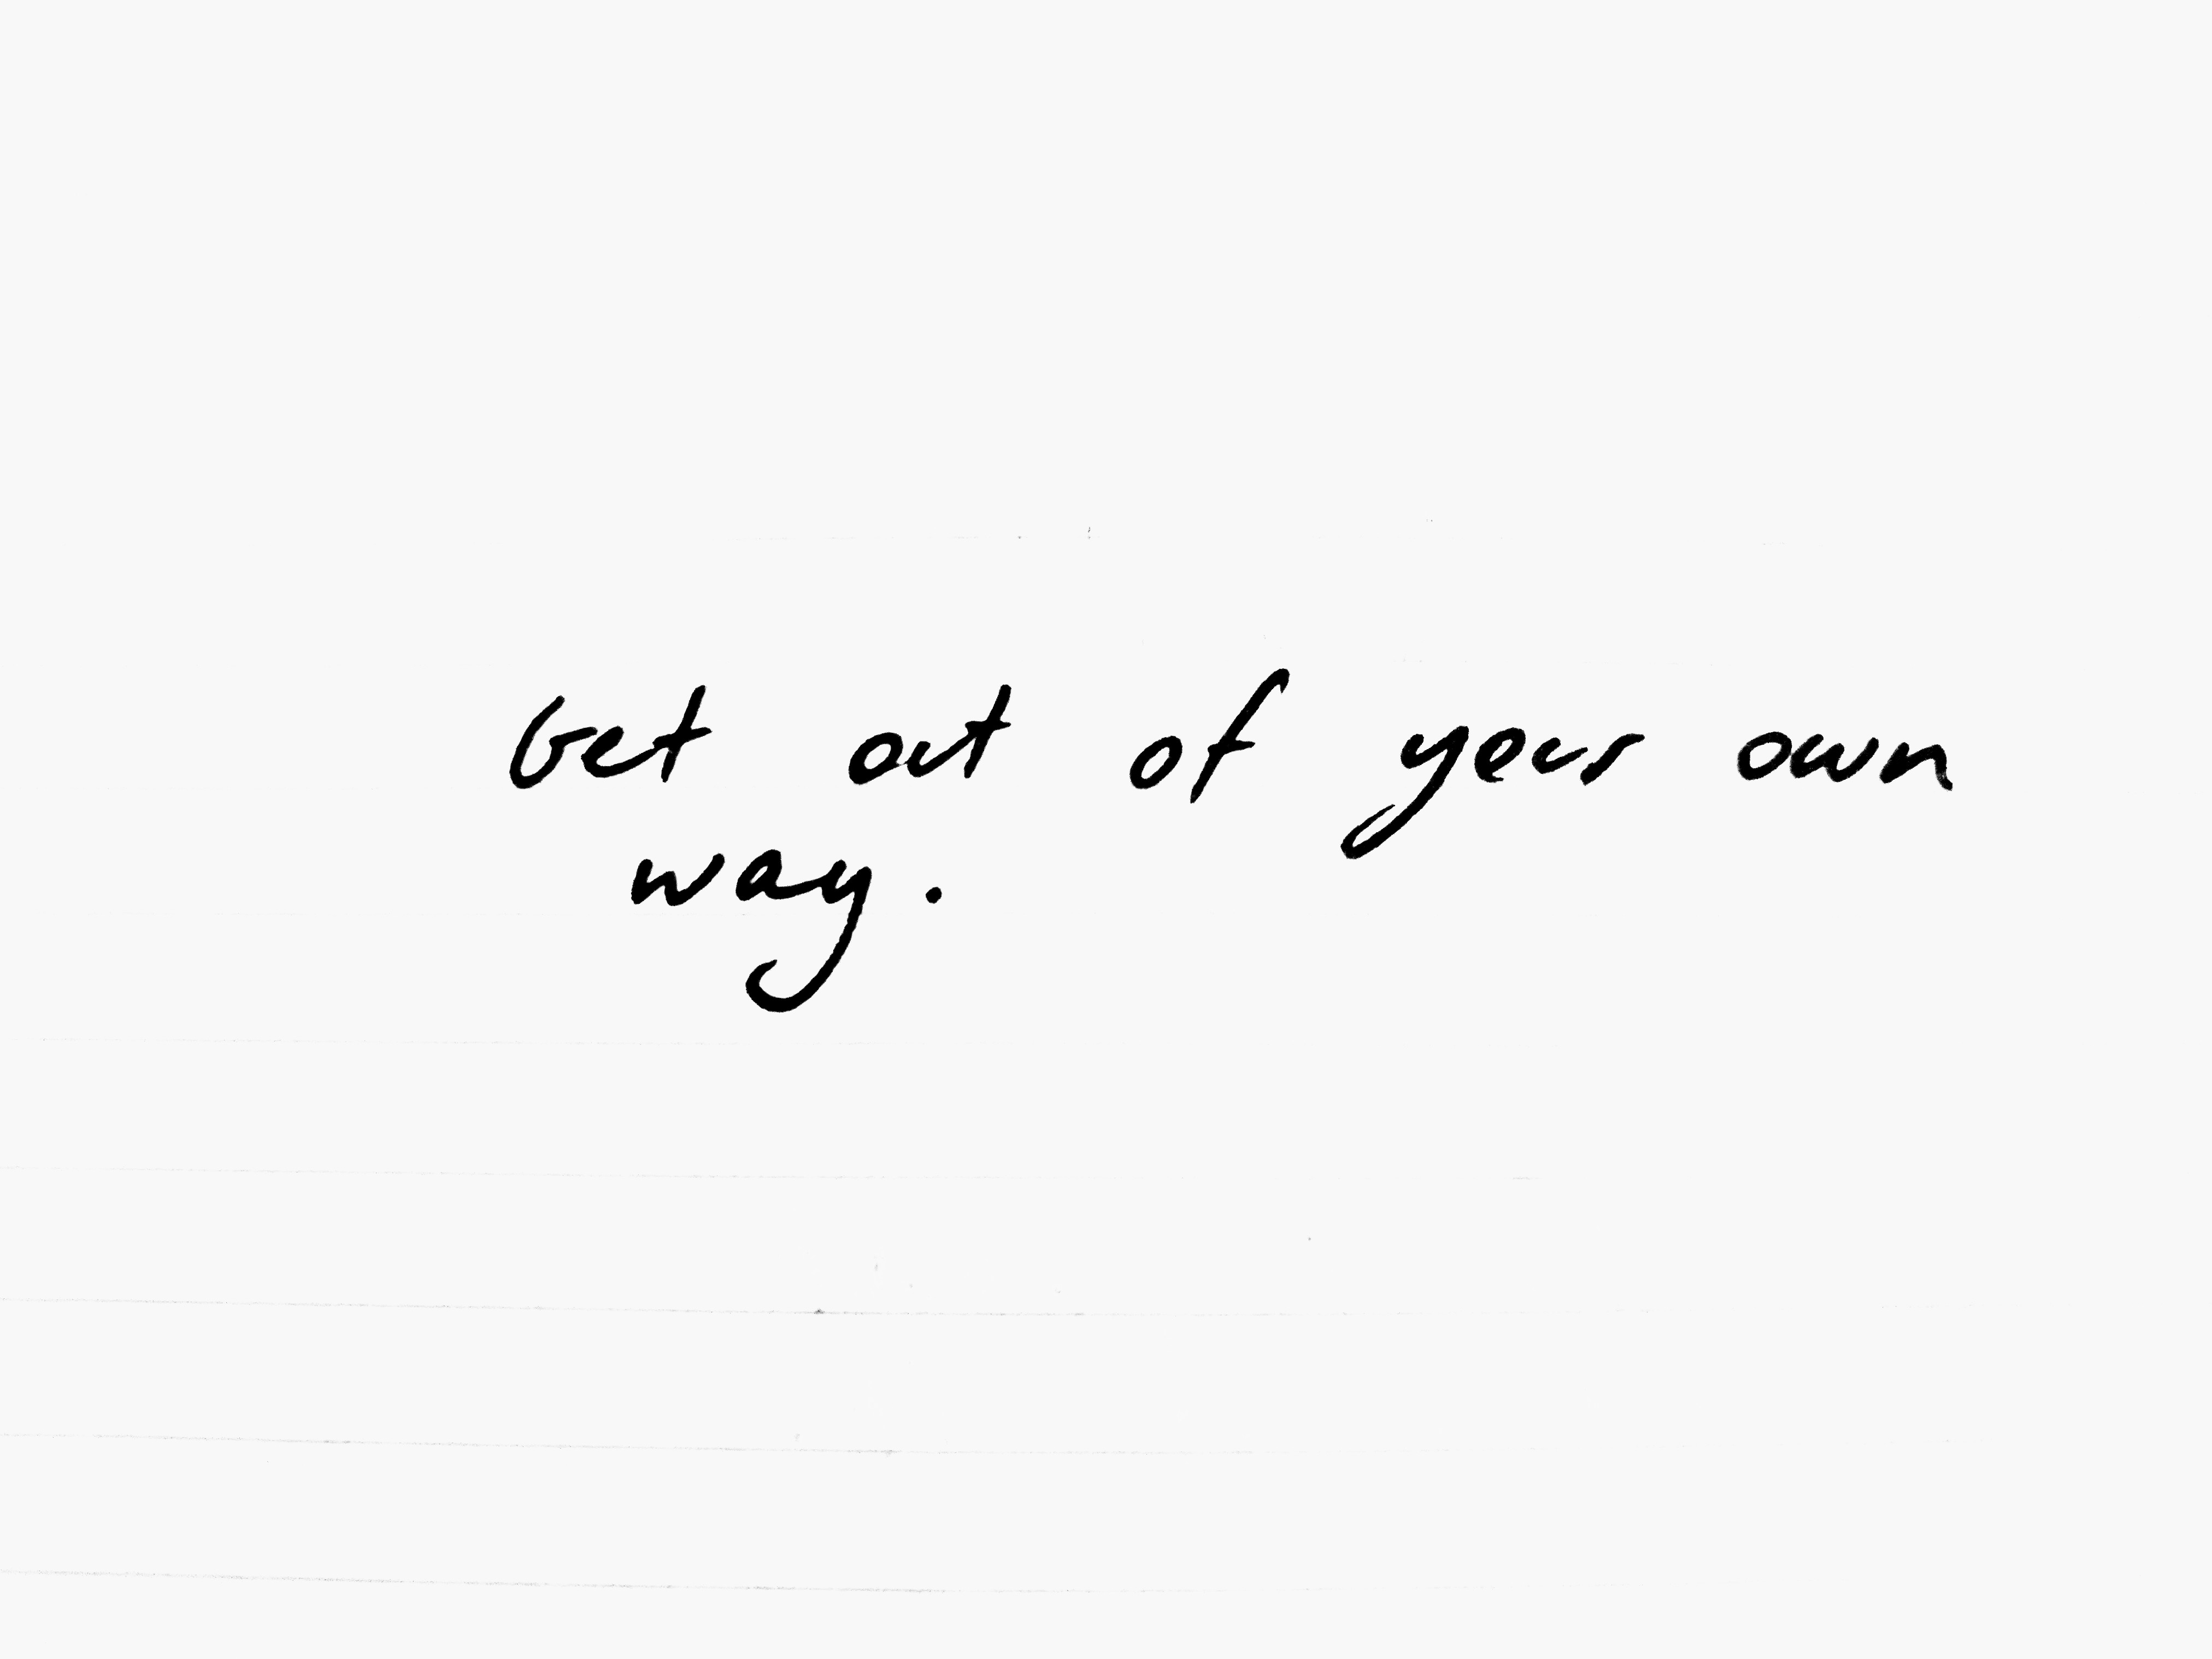 Get out of your own
way.